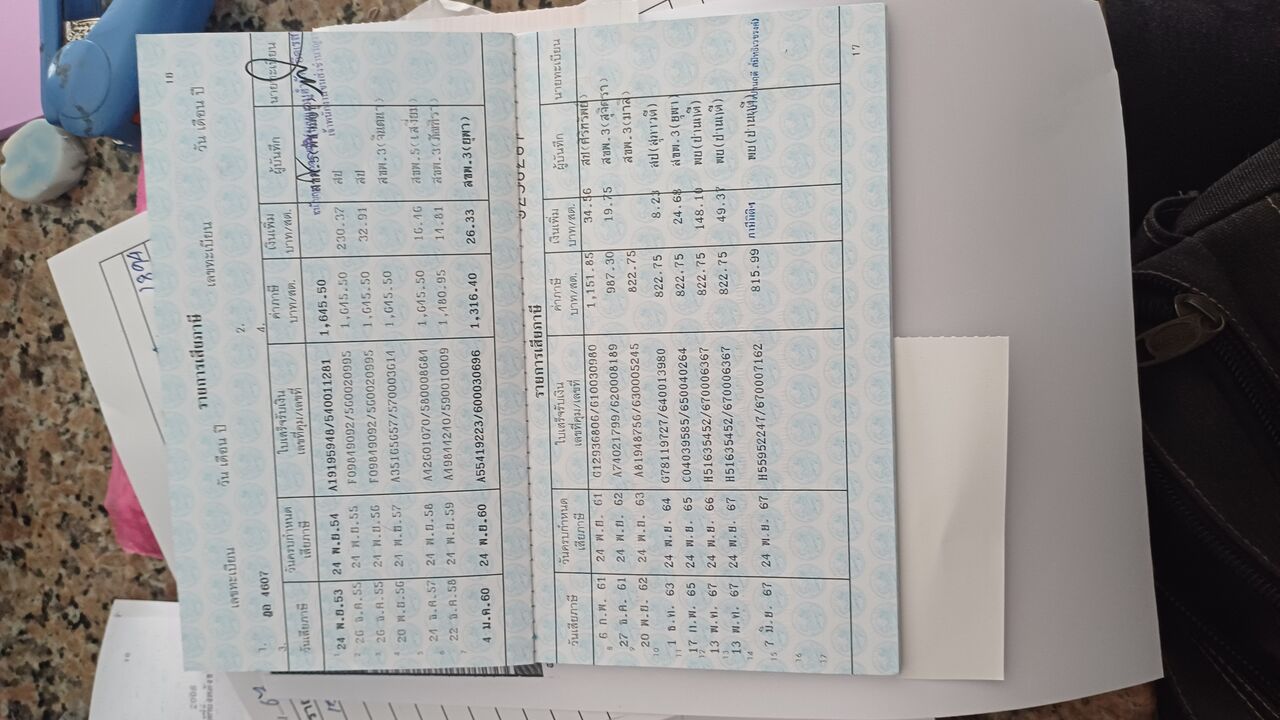 16
รายการเสียภาษี
เลขทะเบียน วัน เดือน ปี เลขทะเบียน วัน เดือน ปี
1. 2.
3. 4.
วันเสียภาษี วันครบกำหนดเสียภาษี ใบเสร็จรับเงิน เลขที่คุม/เลขที่ ค่าภาษี บาท/สต. เงินเพิ่ม บาท/สต. ผู้บันทึก นายทะเบียน
1 24 พ.ย.53 24 พ.ย.54 A19195948/540011281 1,645.50
2 26 ธ.ค.55 24 พ.ย.55 F09849092/560020995 1,645.50 230.37 สป
3 26 ธ.ค.55 24 พ.ย.56 F09849092/560020995 1,645.50 32.91 สป
4 20 พ.ย.56 24 พ.ย.57 A35165657/570003614 1,645.50 สขพ.3(จินตนา)
5 24 ธ.ค.57 24 พ.ย.58 A42601070/580008684 1,645.50 16.46 สขพ.5(เสวียน)
6 22 ธ.ค.58 24 พ.ย.59 A49844240/590010009 1,480.95 14.81
7 4 ม.ค.60 24 พ.ย.60 A55419223/600030696 1,316.40 26.33 สขพ.3(ยุพา)
รายการเสียภาษี
วันเสียภาษี วันครบกำหนดเสียภาษี ใบเสร็จรับเงิน เลขที่คุม/เลขที่ ค่าภาษี บาท/สต. เงินเพิ่ม บาท/สต. ผู้บันทึก นายทะเบียน
8 6 ก.พ. 61 24 พ.ย. 61 G12936806/610030980 1,151.85 34.56
9 27 ธ.ค. 61 24 พ.ย. 62 A74021799/620008189 987.30 19.75 สขพ.3(สุจิตรา)
20 พ.ย. 62 24 พ.ย. 63 A81948756/630005245 822.75 สขพ.3(มาลี)
10 1 ธ.ค. 63 24 พ.ย. 64 G78119727/640013980 822.75 8.23 สป(สุภาวดี)
11 17 ก.พ. 65 24 พ.ย. 65 C04039585/650040264 822.75 24.68 สขพ.3(ยุพา)
12 13 พ.ค. 67 24 พ.ย. 66 H51635452/670006367 822.75 148.10 พย(ปานเทิ)
13 13 พ.ค. 67 24 พ.ย. 67 H51635452/670006367 822.75 49.37 พย(ปานเทิ)
14
15 7 มิ.ย. 67 24 พ.ย. 67 H55952247/670007162 815.99
16
17
17